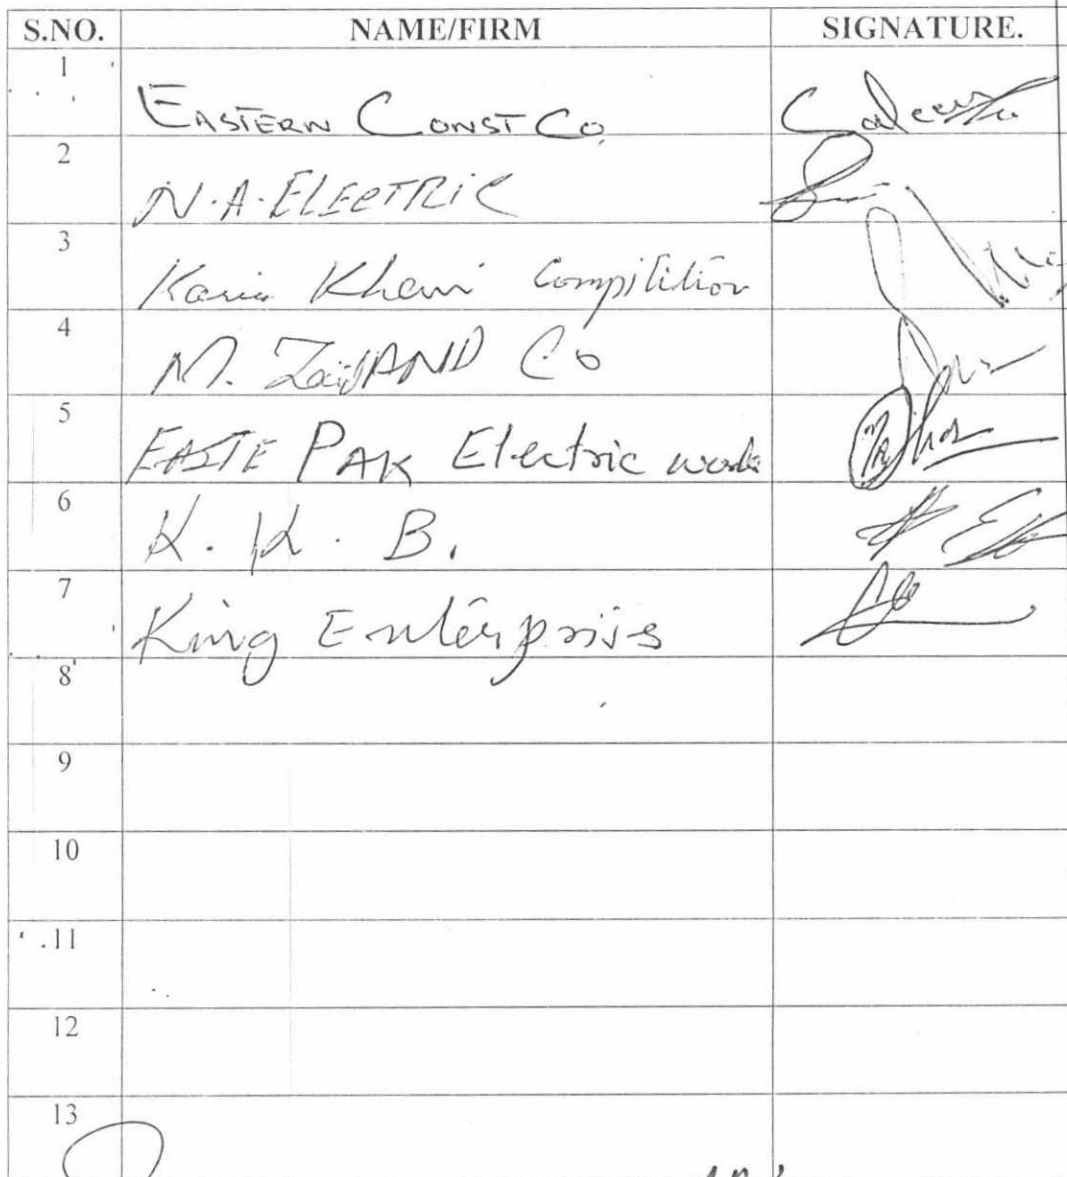 S.NO. NAME/FIRM SIGNATURE.
1 EASTERN CONST CO. Saleem
2 N.A. ELECTRIC
3 Karim Khan Compitition
4 M. Zaid AND Co
5 EASTE PAK Electric works
6 K. K. B.
7 King Enterpriss
8
9
10
11
12
13